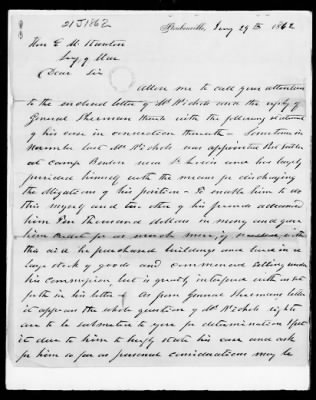 21 J 1862
Steubenville, Jany 29th 1862
Hon E. M. Stanton
Secy of War
Dear Sir
Allow me to call your attention
to the enclosed letter of Mr Nichols and the reply of
General Sherman thereto with the following statement
of his case in connection therewith - Sometime in
November last Mr Nichols was appointed Post sutler
at Camp Benton near St Louis and has largely
provided himself with the means for discharging
the obligations of his position - To enable him to do
this myself and two other of his friends advanced
him Ten thousand dollars in money and gave
him credit for as much more, if needed with
this aid he purchased buildings and laid in a
large stock of goods and commenced selling under
his commission but is greatly interfered with as set
forth in his letter - As from General Shermans letter
it appears the whole question of Mr Nichols rights
are to be submitted to you for determination I feel
it due to him to briefly state his case and ask
for him as far as personal considerations may be